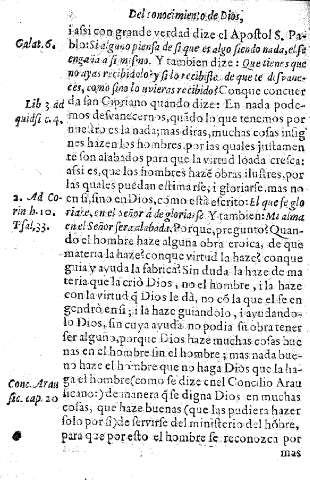 Del conocimiento de Dios,
i assi con grande verdad dize el Apostol S. Pa-
Galat. 6.
blo: Si alguno piensa de si que es algo siendo nada, el se
engaña a si mismo. Y tambien dize: Que tienes que
no ayas recibido? y si lo recibiste de que te desvane-
ces, como sino lo uvieras recibido? Con que concuer
Lib 3 ad
da san Cipriano quando dize: En nada pode-
quidsi c. 4.
mos desvanecernos, quãdo lo que tenemos por
nuestro es la nada; mas diras, muchas cosas insig
nes hazen los hombres, por las quales justamen
te son alabados para que la virtud loada cresca:
assi es, que los hombres hazẽ obras ilustres, por
las quales puedan estimarse, i gloriarse. mas no
2. Ad Co-
en si, sino en Dios, como està escrito: El que se glo
rin h. 10.
riare, en el Señor á de gloriarse Y tambien: Mi alma
Psal, 33.
en el Señor sera alabada. Porque, pregunto? Quan-
do el hombre haze alguna obra eroica, de que
materia la haze? con que virtud la haze? con que
guia y ayuda la fabrica? Sin duda la haze de ma
teria que la criò Dios, no el hombre, i la haze
con la virtud q̃ Dios le dà, no cõ la que el se en-
gendrò en si; i la haze guiandolo, i ayudando-
lo Dios, sin cuya ayuda no podia su obra tener
ser alguno, porque Dios haze muchas cosas bue
nas en el hombre sin el hombre; mas nada bue-
no haze el hombre que no haga Diòs que la ha-
Conc. Arau
ga el hombre (como se dize en el Concilio Arau
sic. cap. 20
sicano:) de manera q̃ se digna Dios en muchas
cosas, que haze buenas (que las pudiera hazer
solo por si) de servirse del ministerio del hõbre,
para que por esto el hombre se reconozca por
mas